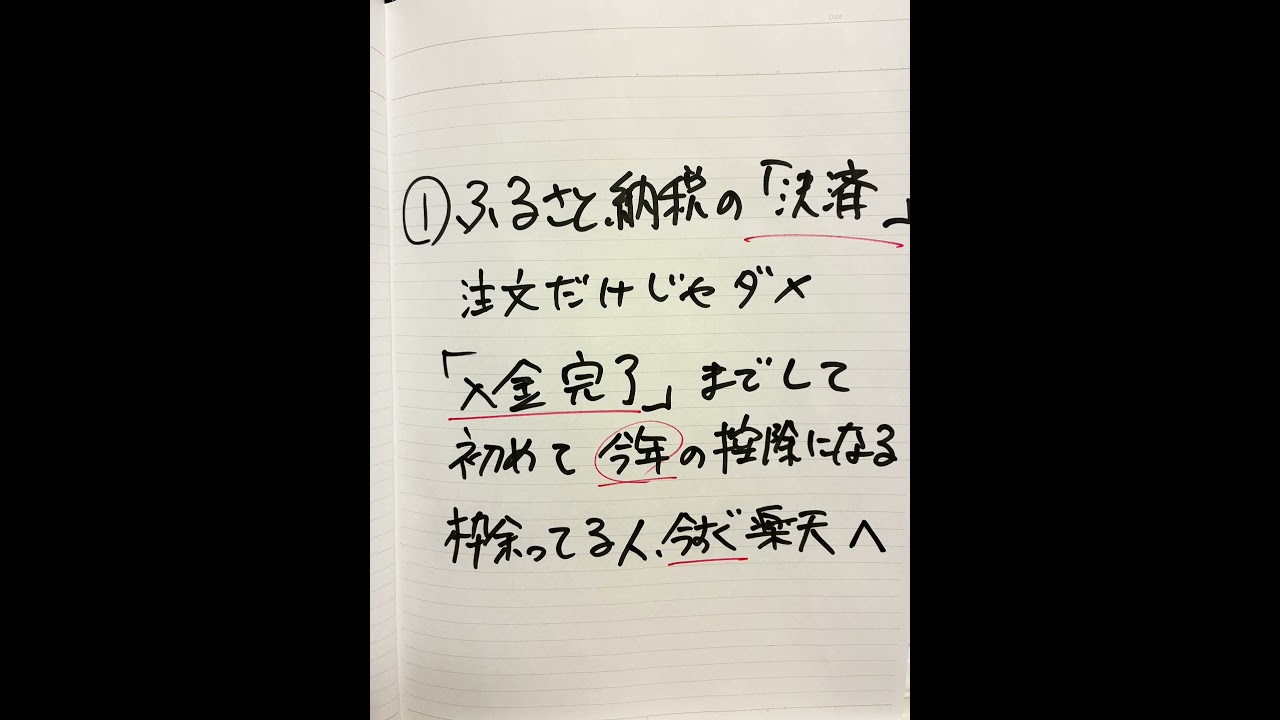 Date
①ふるさと納税の「決済」
注文だけじゃダメ
「入金完了」までして
初めて今年の控除になる
枠余ってる人、今すぐ楽天へ